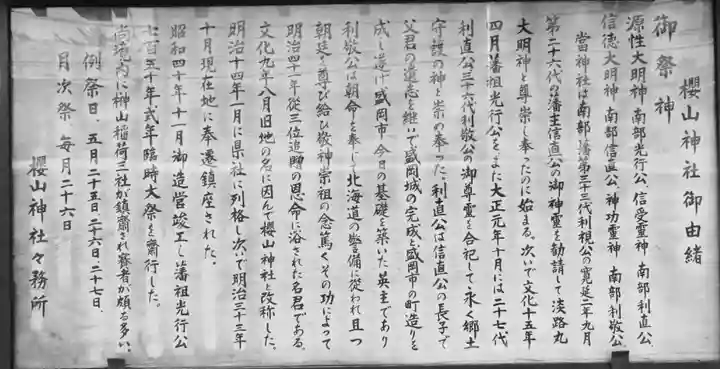 櫻山神社御由緒
御祭神
源性大明神 南部光行公、信受霊神 南部利直公、
信徳大明神 南部信直公、神功霊神 南部利敬公、
当神社は南部藩第三十三代利視公の寛延二年九月
第二十六代の藩主信直公の御神霊を勧請して淡路丸
大明神と尊崇し奉ったのに始まる。次いで文化十五年
四月藩祖光行公を、また大正元年十月には二十七代
利直公三十六代利敬公の御尊霊を合祀して永く郷土
守護の神と崇め奉った。利直公は信直公の長子で
父君の遺志を継いで盛岡城の完成と盛岡市の町造りを
成し遂げ盛岡市今日の基礎を築いた英主であり
利敬公は朝命を奉じて北海道の警備に従われ且つ
朝廷を尊び給ひ敬神崇祖の念篤くその功によって
明治四十一年従三位追贈の恩命に浴された名君である。
文化九年八月旧地の名に因んで櫻山神社と改称した。
明治十四年一月に県社に列格し次いで明治三十三年
十月現在地に奉遷鎮座された。
昭和四十年十一月御造営竣工し藩祖光行公
七百五十年式年臨時大祭を斎行した。
尚境内に榊山稲荷三社が鎮齋され賽者が頗る多い。
例祭日、五月二十五日二十六日二十七日、
月次祭、毎月二十六日
櫻山神社々務所